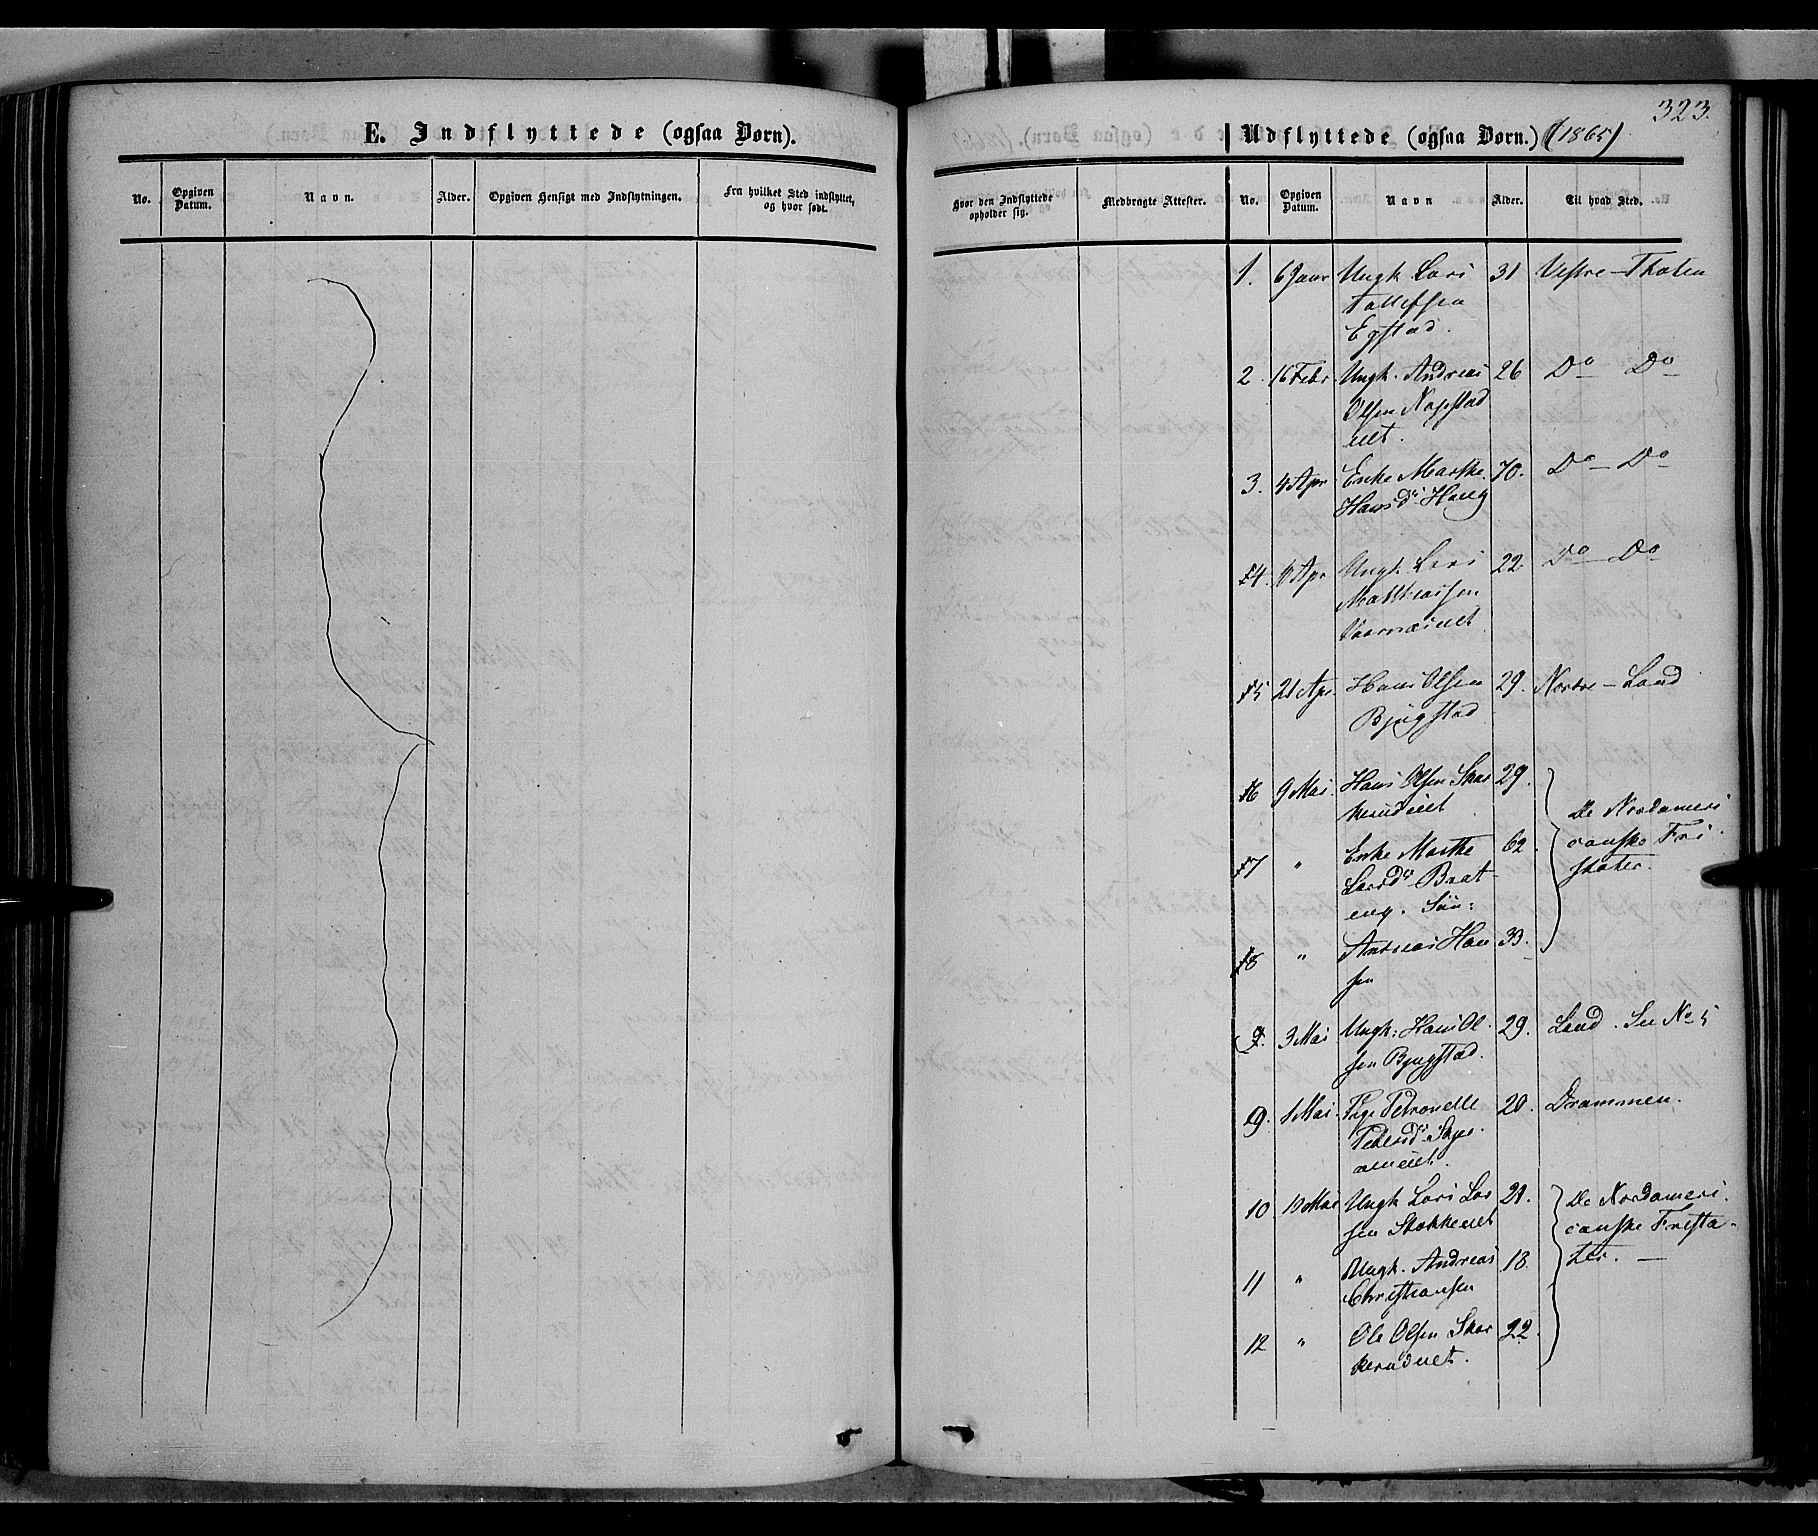 323.
E. Indflyttede (ogsaa Børn).
No. Opgiven Datum. Navn. Alder. Opgiven Hensigt med Indflytningen. Fra hvilket Sted indflyttet, og hvor født.
Udflyttede (ogsaa Børn.) (1865)
Hvor den Indflyttede opholder sig. Medbragte Attester. No. Opgiven Datum. Navn Alder. Til hvad Sted.
1. 6 Janr Ungk Lars 31 Vestre-Thoten
Tollefsen
Egstad.
2. 16 Febr. Ungk. Andreas 26 Do Do
Olsen Nøgstad
eiet.
3. 4 Apr Enke Marthe 70. Do - Do
Hansd. Haug
4. Apr Ungk. Lars 22. Do - Do
Matthiassen
5 21 Apr. Hans Olsen 29. Nordre-Land
Bjugstad
6 9 Mai. Hans Olsen Skar 29.
kerudeiet
De Nordameri
canske Fri
stater.
7 " Enke Marthe 62.
Larsd. Brat
eng. Søn:
8 " Andreas Han 33.
sen
9. 3 Mai Ungk: Hans Ol. 29. Land. See No 5
sen Bjugstad.
9. Mai. Pige Petronelle 20. Drammen.
Pedersd.
10 10 Mai Ungk Lars Lar 21.
sen Stokkeeiet
De Nordameri.
canske Frista-
ter. -
11 " Ungk. Andreas 18.
Christiansen
12 " Ole Olsen Skar 22.
kerudeiet.